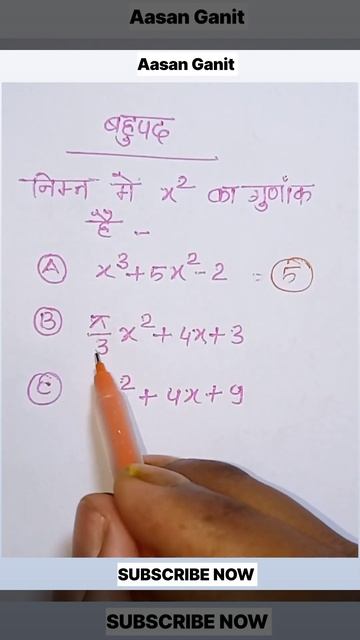 Aasan Ganit
Aasan Ganit
बहुपद
निम्न में x² का गुणाँक
है -
(A) x³+5x²-2 = 5
(B) π/3 x²+4x+3
(C) ²+4x+9
SUBSCRIBE NOW
SUBSCRIBE NOW